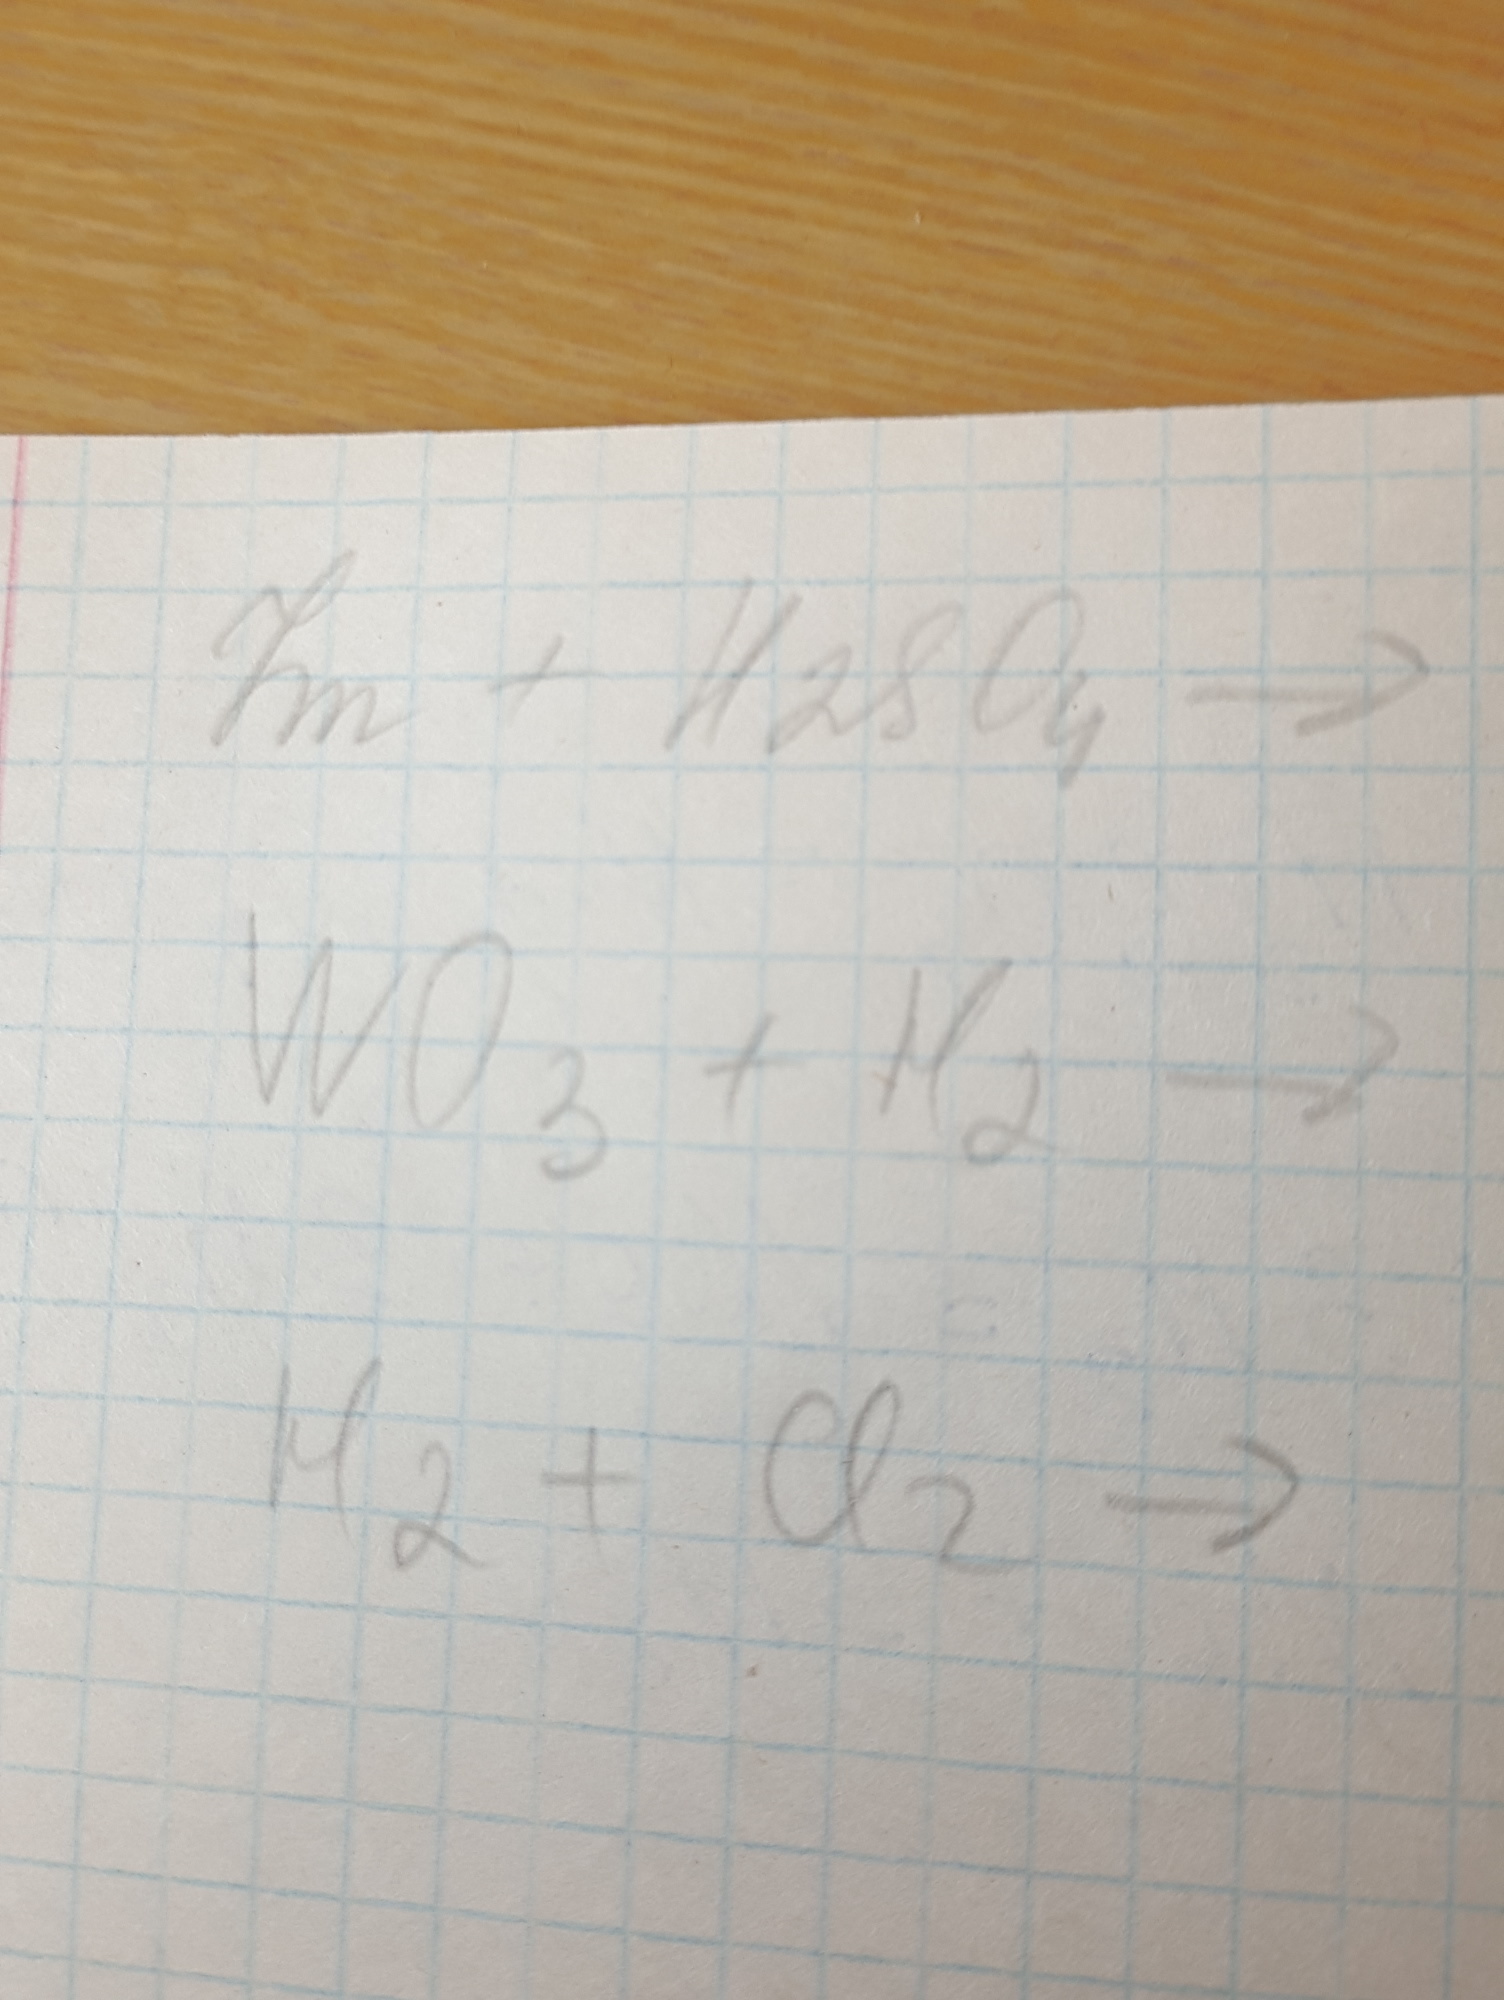 Zn + H2SO4 →
WO3 + H2 →
H2 + Cl2 →